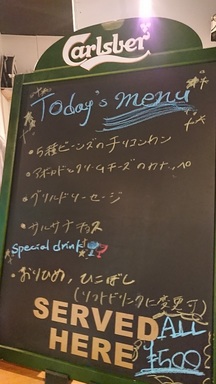 Carlsberg
Today's menu
・5種ビーンズのチリコンカン
・アボカドとクリームチーズのカナッペ
・グリルドソーセージ
・サルサナチョス
Special drink!
・おりひめ、ひこぼし
(ソフトドリンクに変更可)
SERVED
HERE
ALL
¥500